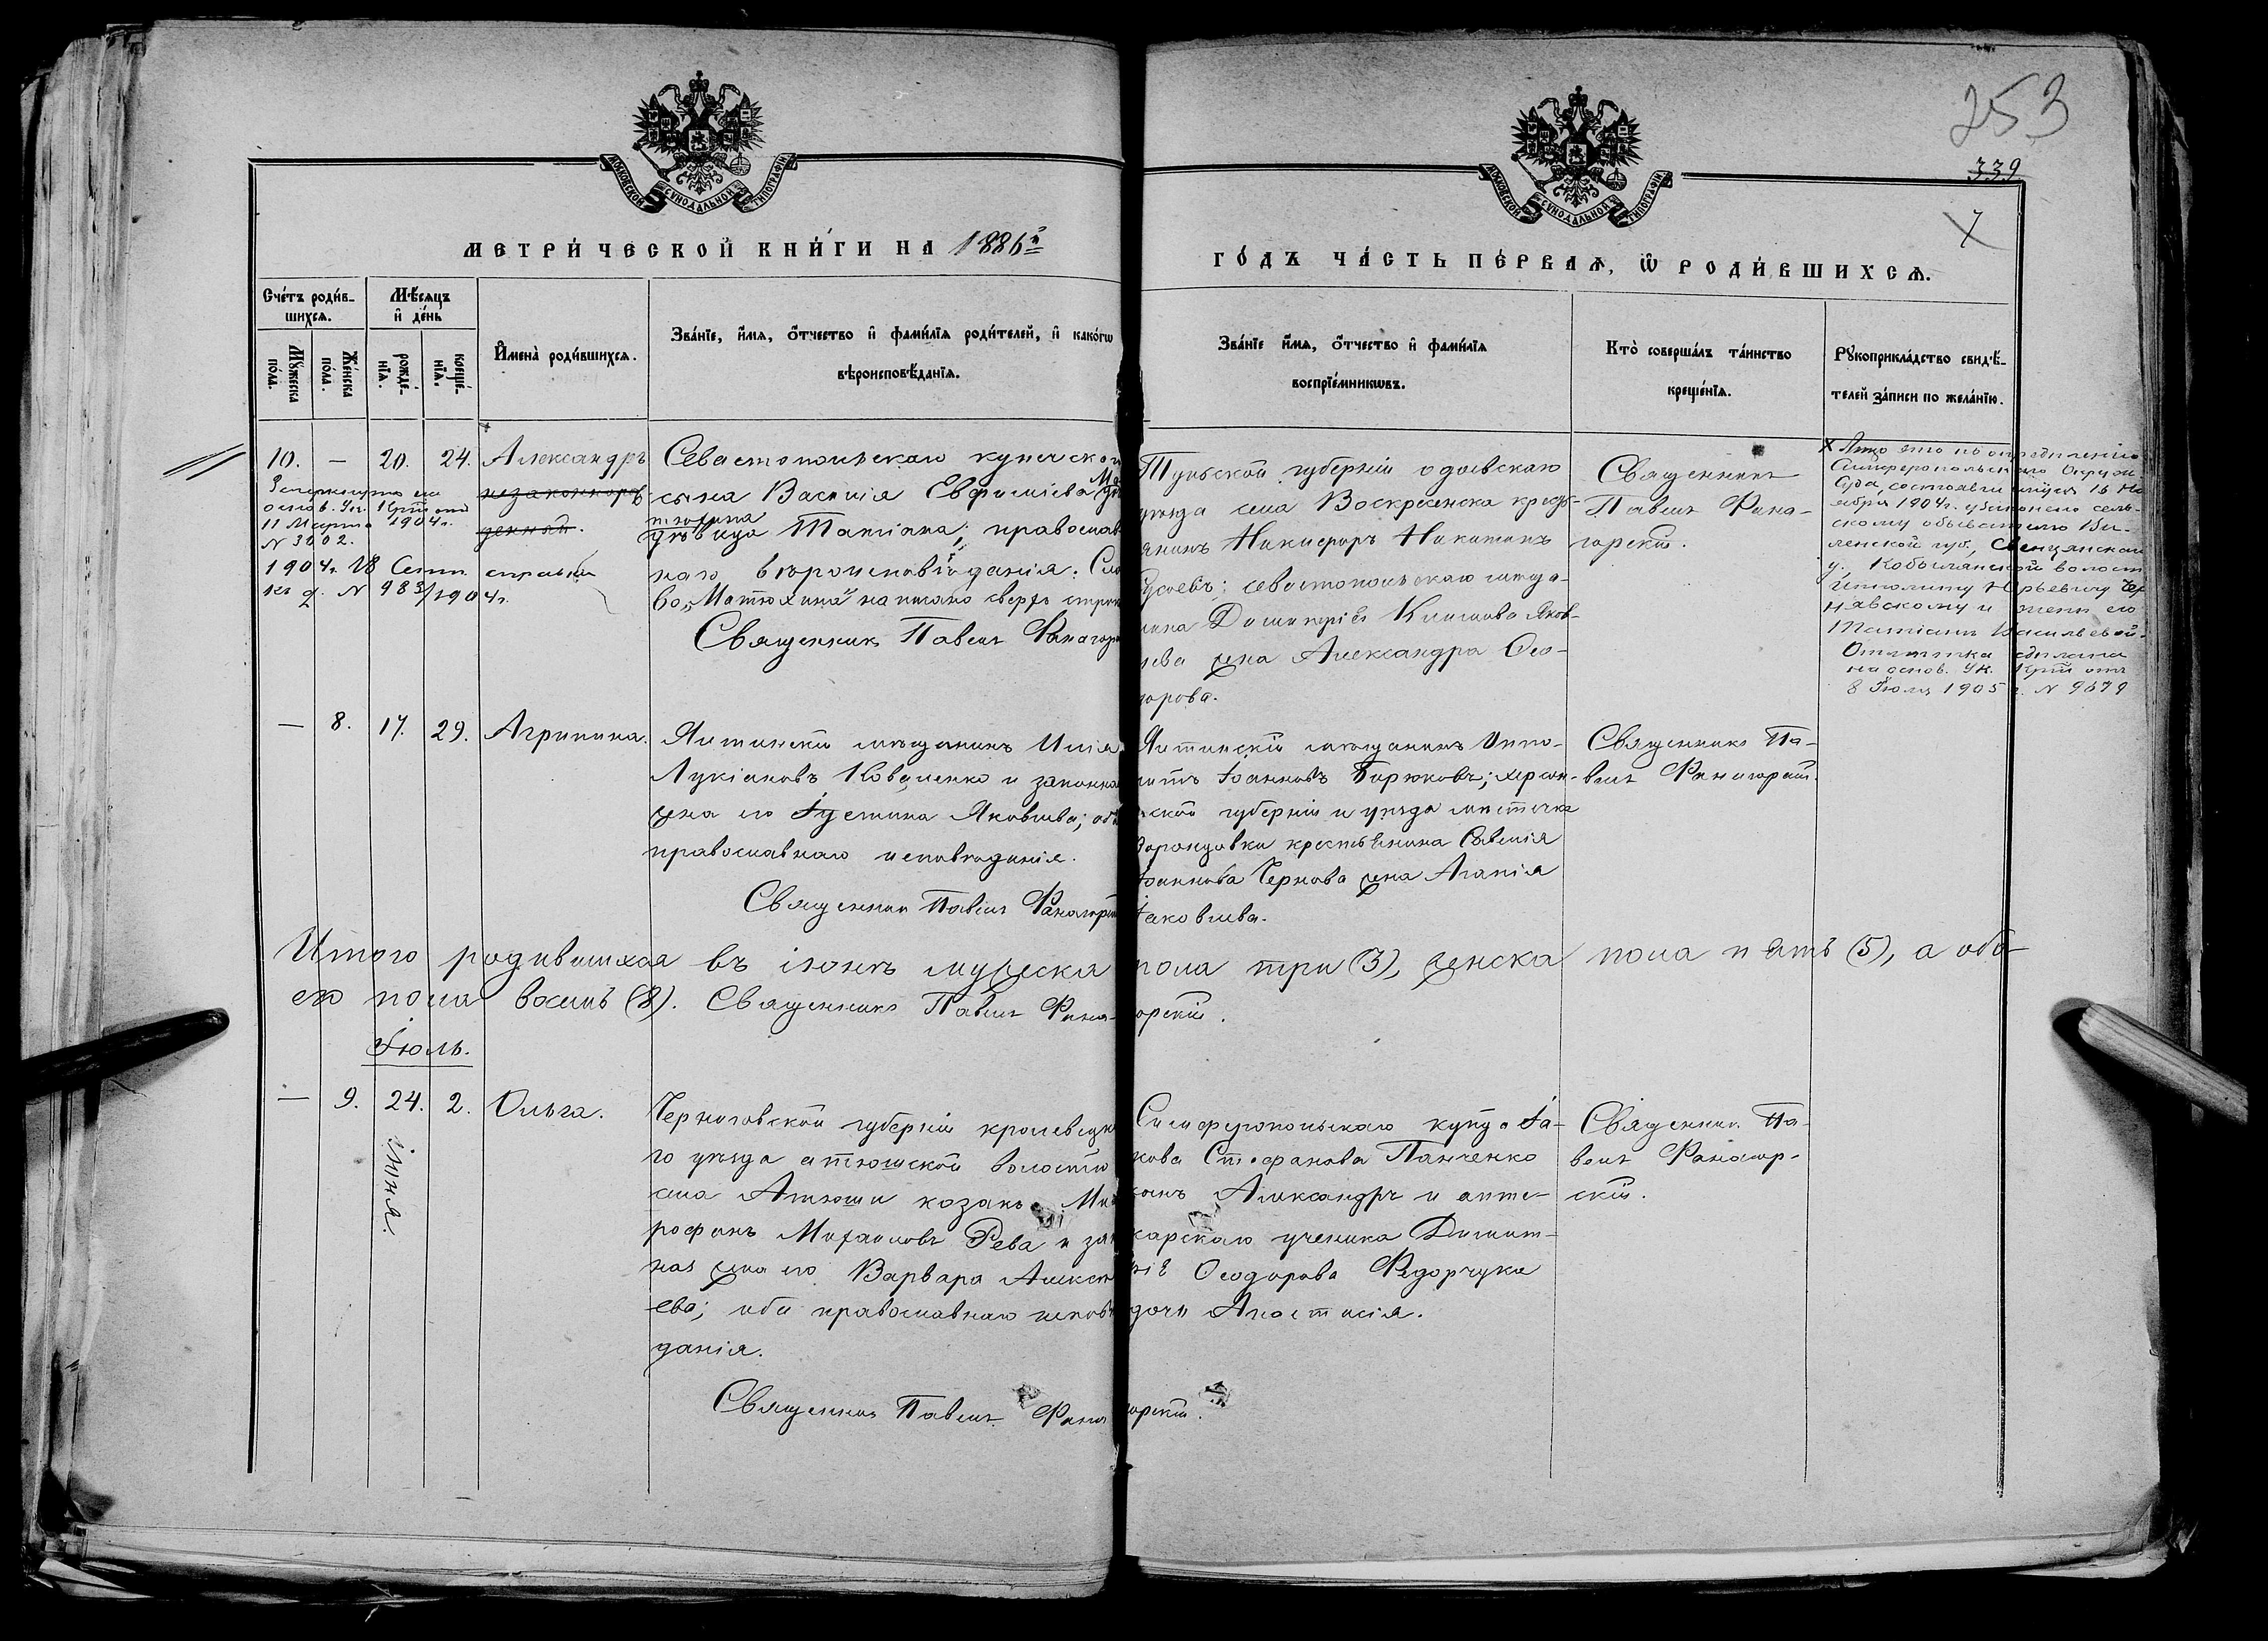 253
339
7
МОСКОВСКОЙ СѴНОДАЛЬНОЙ ТИПОГРАФІИ
МОСКОВСКОЙ СѴНОДАЛЬНОЙ ТИПОГРАФІИ
МЕТРИ́ЧЕСКОЙ КНИ́ГИ НА 1886й
ГО́ДЪ ЧА́СТЬ ПЕ́РВАѦ, Ѿ РОДИ́ВШИХСѦ.
Сче́тъ роди́в-
шихсѧ.
Мꙋ́жеска по́ла.
Же́нска по́ла.
Мѣ́сѧцъ
и҆ де́нь
рожде́-нїѧ.
креще́-нїѧ.
И҆мена̀ роди́вшихсѧ.
Зва́нїе, и҆́мѧ, ѻ҆́тчество и҆ фами́лїѧ роди́телей, и҆ како́гѡ
вѣроисповѣ́данїѧ.
Зва́нїе и҆́мѧ, ѻ҆́тчество и҆ фами́лїѧ
воспрїе́мникѡвъ.
Кто̀ соверша́лъ та́инство
креще́нїѧ.
Рꙋкоприкла́дство свидѣ́-
телей за́писи по жела́нїю.
10. — 20. 24. Александръ
незаконнорож-
денный.
Зачеркнуто на
основ. Ук. Крым от
11 Марта 1904 г.
N 3002.
1904 г. 18 Сент. справка
N 983/1904 г.
Севастопольскаго купеческаго
сына Василія Евфиміева
Матюхина
Татіана; православ-
наго вѣроисповѣданія. Сло-
во „Матюхина" написано сверхъ строки
Священникъ Павелъ Фанагор
Тульской губерніи одоевскаго
уѣзда села Воскресенска кресть-
янинъ Никифоръ Никитинъ
Гусевъ; севастопольскаго мѣща-
нина Димитрія Климова Яков-
лева жена Александра Ѳео-
дорова.
Священникъ
Павелъ Фана-
горскій.
X Лицо это по опредѣленію
Симферопольскаго Окруж.
Суда, состоявшемуся 16 Но
ября 1904 г. узаконено сель-
скому обывателю Ви-
ленской губ., Свенцянскаго
у. Кобыльникской волости
Ипполиту Юрьевичу Чер
нявскому и женѣ его
Татіанѣ Васильевой.
Отмѣтка сдѣлана
на основ. Ук. Крым отъ
8 Іюля 1905 г. N 9679
— 8. 17. 29. Агрипина.
Ялтинскій мѣщанинъ Илія
Лукіановъ Коваленко и законная
жена его Іустина Яковлева; оба
православнаго исповѣданія.
Священникъ Павелъ Фанагорскій
Ялтинскій мѣщанинъ Иппо-
литъ Іоанновъ Бирюковъ; херсон-
ской губерніи и уѣзда мѣстечка
Воронцовки крестьянина Савелія
Іоаннова Чернова жена Агапія
Іаковлева.
Священникъ Па-
велъ Фанагорскій.
Итого родившихся въ іюнѣ мужеска пола три (3), женска пола пять (5), а обо-
его пола восемь (8). Священникъ Павелъ Фанагорскій.
Іюль.
— 9. 24. 2. Ольга.
іюня.
Черниговской губерніи кролевецка-
го уѣзда атюшской волости
села Атюши козакъ Мит
рофанъ Михаиловъ Рева и закон
ная жена его Варвара Алекс
ева; оба православнаго исповѣ
данія.
Священникъ Павелъ Фанагорскій.
Симферопольскаго купца Іа-
кова Стефанова Панченко
сынъ Александръ и апте-
карскаго ученика Димит-
рія Ѳеодорова Федорчука
дочь Анастасія.
Священникъ Па-
велъ Фанагор-
скій.